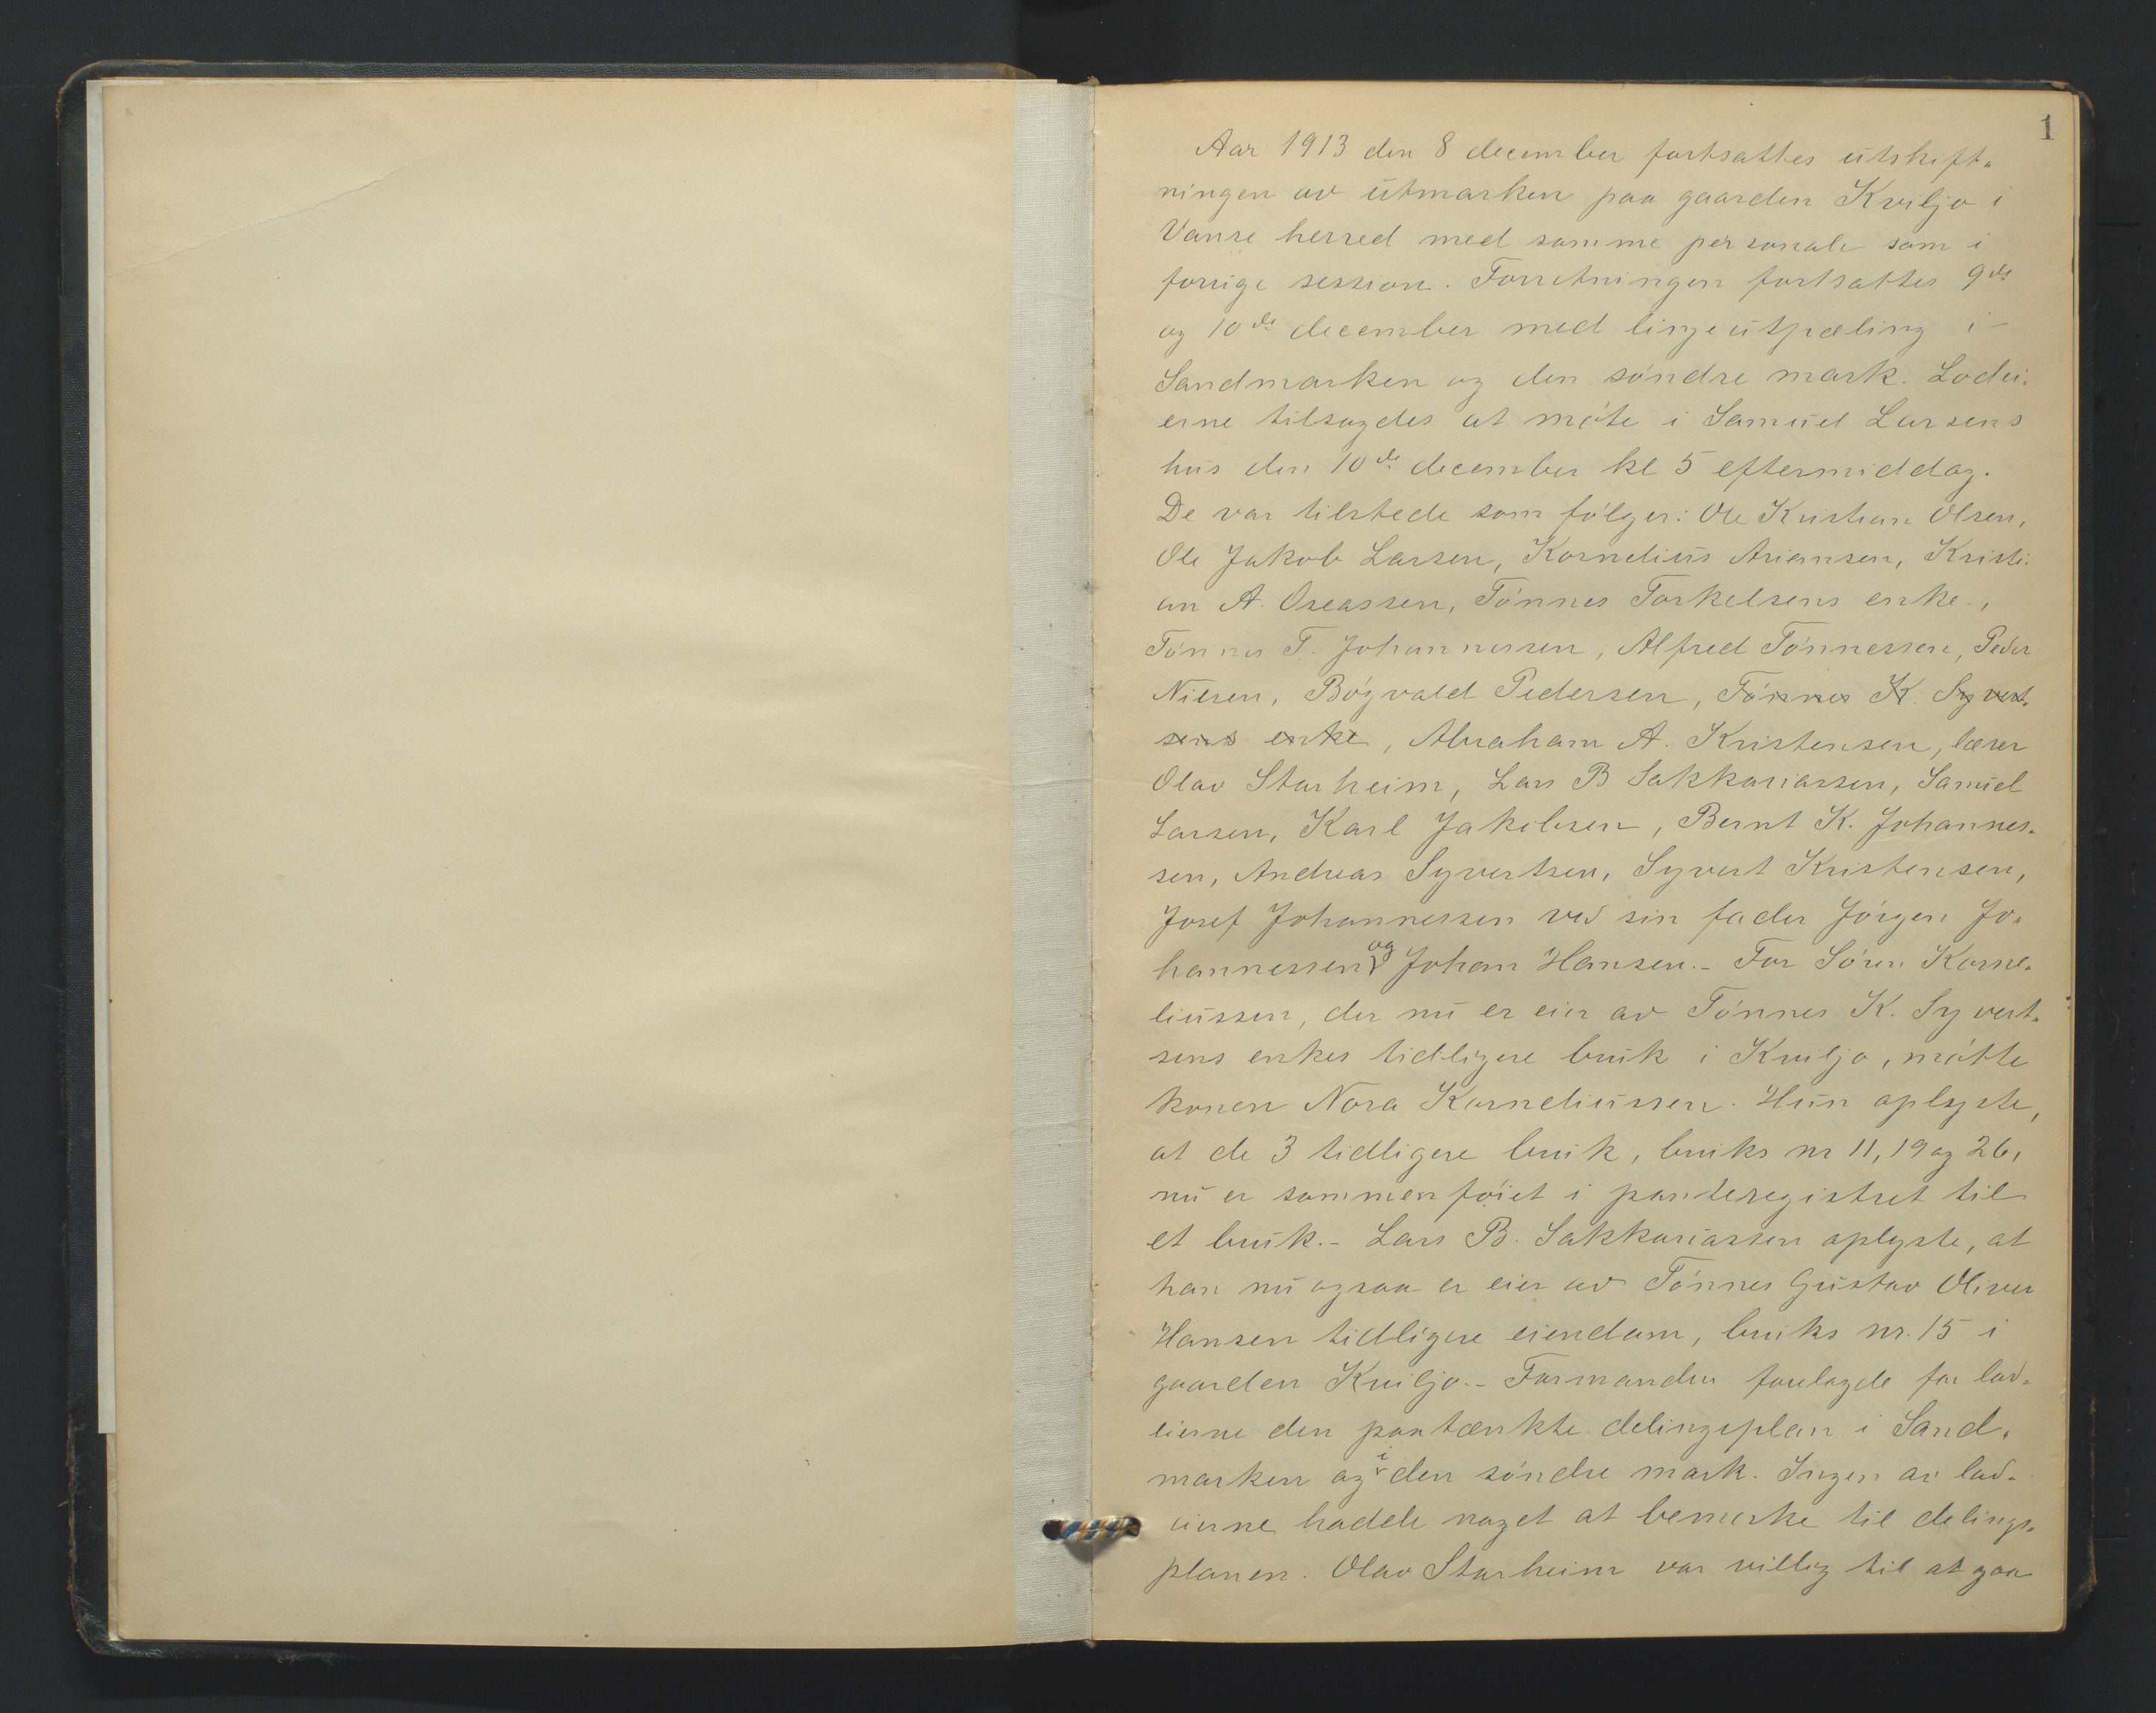 1
Aar 1913 den 8 december fortsattes utskift-
ningen av utmarken paa gaarden Kviljo i
Vanse herred med samme personale som i
forrige session. Forretningen fortsattes 9de
og 10de december med linjeutpæling i
Sandmarken og den søndre mark. Lodei-
erne tilsagdes at møte i Samuel Larsens
hus den 10de december kl 5 eftermiddag.
De var tilstede som følger: Ole Kristian Olsen,
Ole Jakob Larsen, Kornelius Ariansen, Kristi-
an A. Oseassen, Tønnes Torkelsens enke,
Tønnes T. Johannessen, Alfred Tønnessen, Peder
Nilsen, Bøgvald Pedersen, Tønnes K. Syvert-
sens enke, Abraham A. Kristensen, lærer
Olav Starheim, Lars B Sakkariassen, Samuel
Larsen, Karl Jakobsen, Bernt K. Johannes-
sen, Andreas Syvertsen, Syvert Kristensen,
Josef Johannessen ved sin fader Jørgen Jo-
hannessen og Johan Hansen.- For Søren Korne-
liussen, der nu er eier av Tønnes K. Syvert-
sens enkes tidligere bruk i Kviljo, møtte
konen Nora Korneliussen. Hun oplyste,
at de 3 tidligere bruk, bruks nr 11, 19 og 26,
nu er sammenføiet i panteregistret til
et bruk.- Lars B. Sakkariassen oplyste, at
han nu ogsaa er eier av Tønnes Gustav Oliver
Hansen tidligere eiendom, bruks nr. 15 i
gaarden Kviljo.- Formanden forelagde for lod-
eierne den paatænkte delingsplan i Sand-
marken og i den søndre mark. Ingen av lod-
eierne hadde noget at bemerke til delings-
planen. Olav Starheim var villig til at gaa